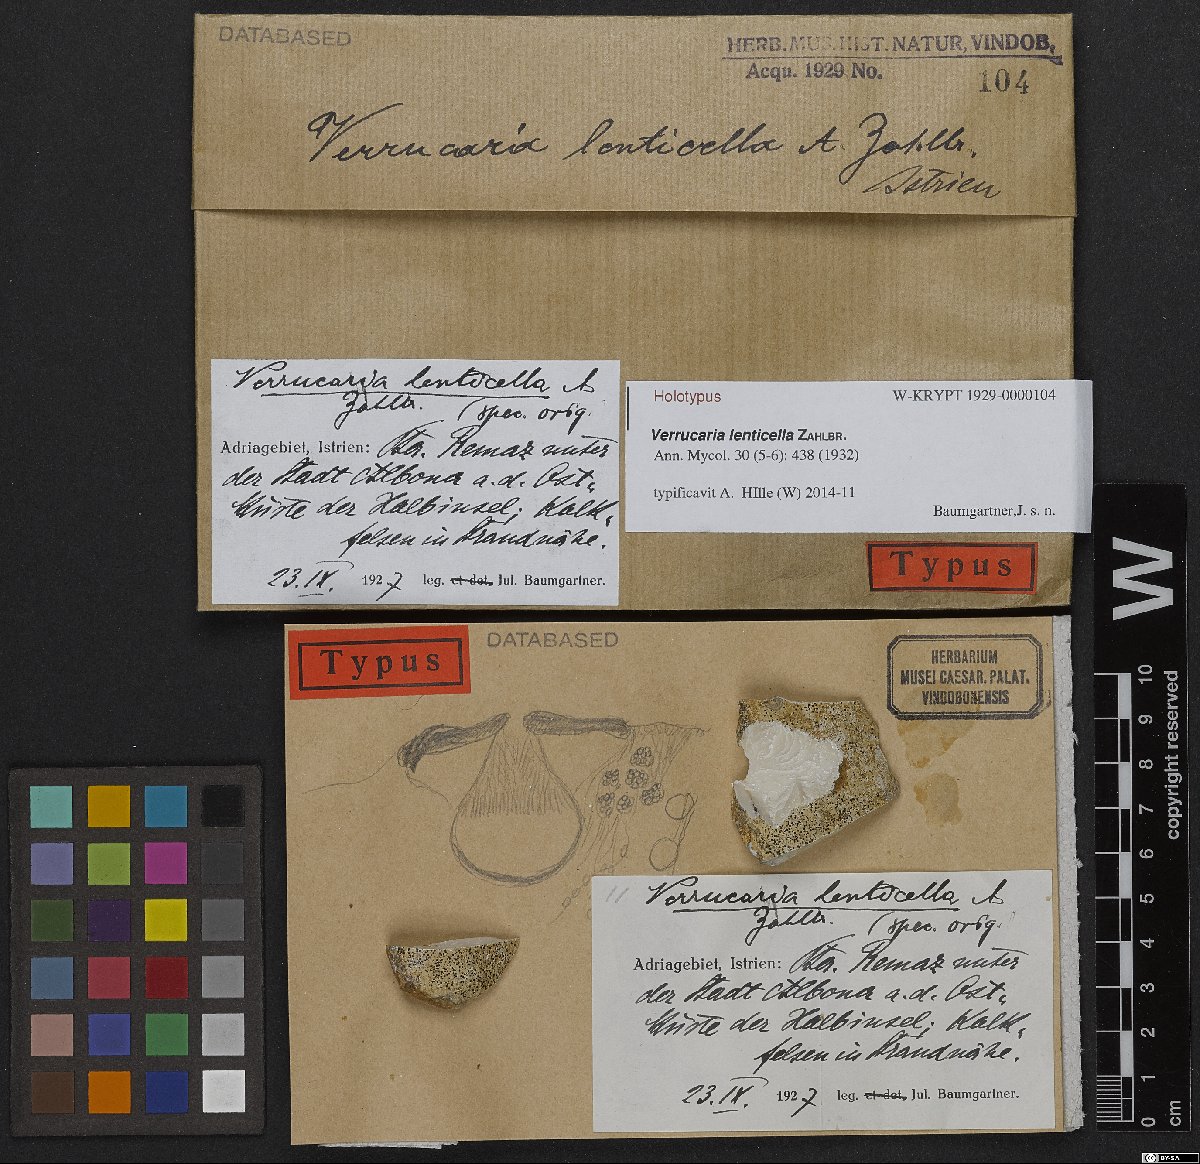 DATABASED
HERB. MUS. HIST. NATUR, VINDOB.
Acqu. 1929 No.
104
Verrucaria lenticella A. Zahlbr.
Istrien
Verrucaria lenticella A
Zahlbr. (spec. orig.
Adriagebiet, Istrien: Pta. Remaz unter
der Stadt Albona a. d. Ost-
küste der Halbinsel; Kalk-
felsen in Strandnähe.
23. IX. 1927 leg. et det. Jul. Baumgartner.
Holotypus W-KRYPT 1929-0000104
Verrucaria lenticella ZAHLBR.
Ann. Mycol. 30 (5-6): 438 (1932)
typificavit A. HIlle (W) 2014-11
Baumgartner,J. s. n.
Typus
Typus
DATABASED
HERBARIUM
MUSEI CAESAR. PALAT.
VINDOBONENSIS
11
Verrucaria lenticella A
Zahlbr. (spec. orig.)
Adriagebiet, Istrien: Pta. Remaz unter
der Stadt Albona a. d. Ost-
küste der Halbinsel; Kalk-
felsen in Strandnähe.
23. IX. 1927 leg. et det. Jul. Baumgartner.
W
10
9
8
7
6
5
4
3
2
1
0
cm
copyright reserved
CC BY-SA